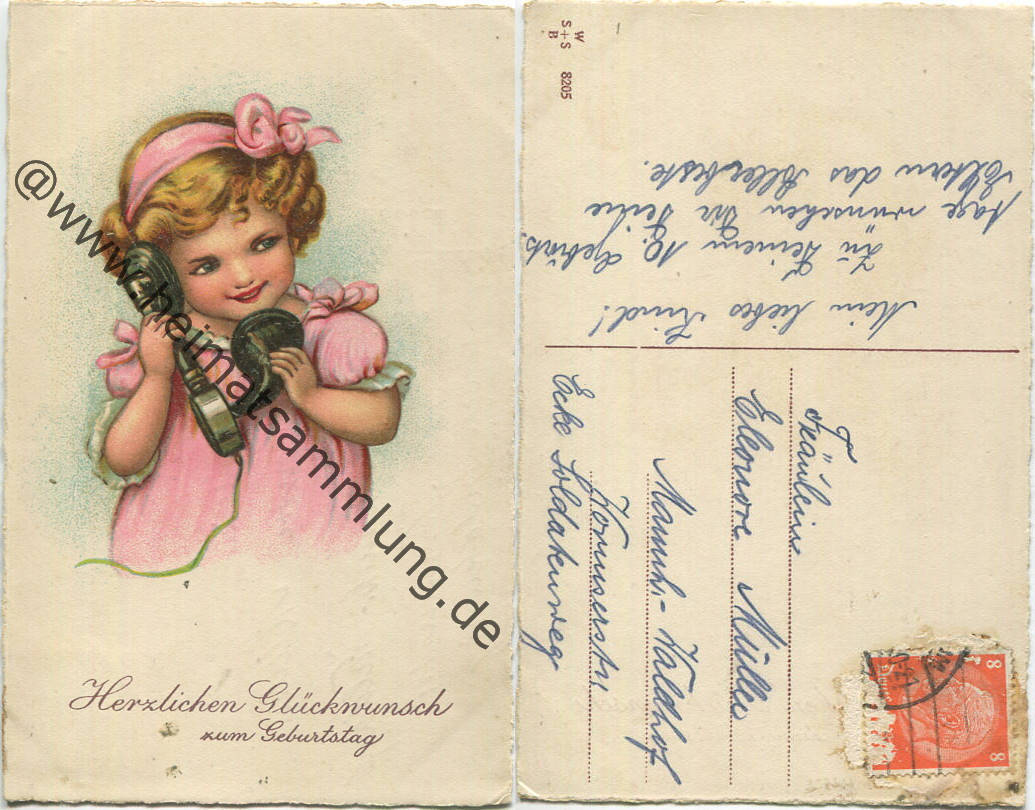 @www.heimatsammlung.de
Herzlichen Glückwunsch
zum Geburtstag
W
S+S
B
8205
Mein liebes Kind!
Zu Deinem 10. Geburts-
tage wünschen Dir Deine
Eltern das Allerbeste.
Fräulein
Elenore Müller
Mannh.-Waldhof
Wormserstr.
Ecke Soldatenweg
8
8